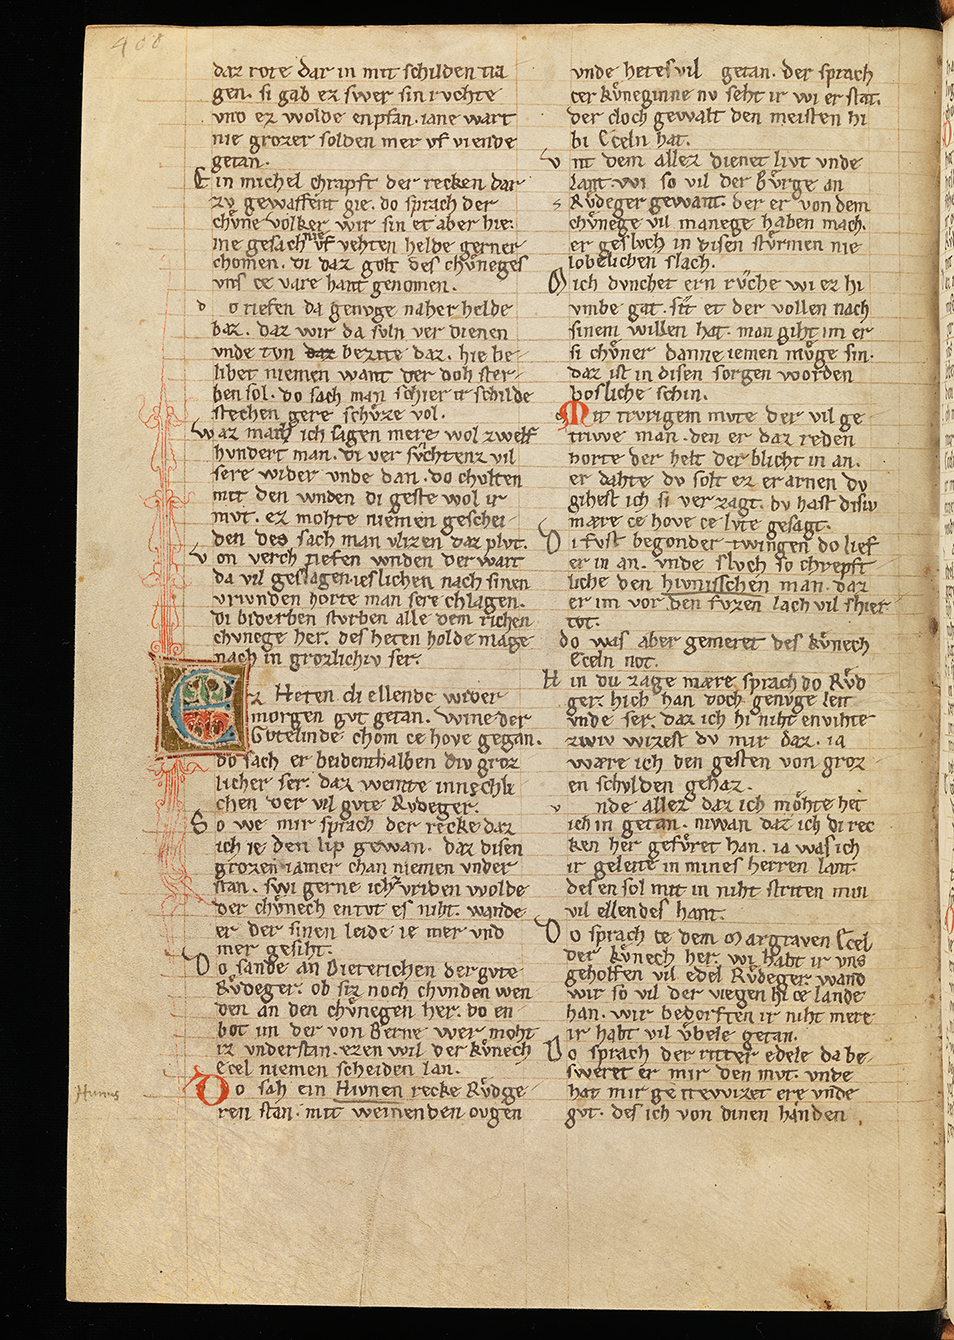 400
daz rote dar in mit schilden tra
gen. si gab ez swer sin rvchte
vnd ez wolde enpfan. iane wart
nie grozer solden mer vf viende
getan.
Ein michel chrapft der recken dar
zv gewaffent gie. do sprach der
chvͤne volker wir sin et aber hie.
ine gesach nie vf vehten helde gerner
chomen. di daz golt des chvͤneges
vns ce vare hant genomen.
do riefen da genvge naher helde
baz. daz wir da svln ver dienen
vnde tvn daz bezite daz. hie be-
libet niemen want der doh ster-
ben sol. do sach man schier ir schilde
stechen gere schvͤze vol.
waz mach ich sagen mere wol zwelf
hvndert man. di ver svͦchtenz vil
sere wider vnde dan. do chvlten
mit den wnden di geste wol ir
mvt. ez mohte niemen geschei-
den des sach man vlizen daz plvt.
von verch tiefen wnden der wart
da vil geslagen. ieslichen nach sinen
vrivnden horte man sere chlagen.
di biderben stvrben alle dem richen
chvnege her. des heten holde mage
nach in grozlichiv ser.
Ez Heten di ellende wider
morgen gvt getan. wine der
Gotelinde chom ce hove gegan.
do sach er beidenthalben div groz
licher ser. daz weinte innechli
chen der vil gvte Rvdeger.
So we mir sprach der recke daz
ich ie den lip gewan. daz disen
grozen iamer chan niemen vnder
stan. swi gerne ichz vriden wolde
der chvͤnech entvt es niht. wande
er der sinen leide ie mer vnd
mer gesiht.
Do sande an Dieterichen der gvte
Rvͤdeger. ob siz noch chvnden wen
den an den chvͤnegen her. do en
bot im der von Berne wer moht
iz vnderstan. ezen wil der kvͤnech
Ecel niemen scheiden lan.
Do sah ein Hivnen recke Rvͤdge-
Hunus
ren stan. mit weinenden ovgen
vnde hetes vil getan. der sprach
cer kvͤneginne nv seht ir wi er stat.
der doch gewalt den meisten hi
bi Eceln hat.
vnt dem allez dienet livt vnde
lant. wi so vil der Bvͤrge an
Rvͤdeger gewant. der er von dem
chvͤnege vil manege haben mach.
er geslvch in disen stvͤrmen nie
lobelichen slach.
Mich dvnchet ern rvͦche wi ez hi
vmbe gat. sit et der vollen nach
sinem willen hat. man giht im er
si chvͤner danne iemen mvͤge sin.
daz ist in disen sorgen worden
bosliche schin.
Mit trvrigem mvte der vil ge
trivve man. den er daz reden
horte der helt der blicht in an.
er dahte dv solt ez er arnen dv
gihest ich si ver zagt. dv hast disiv
mære ce hove ce lvte gesagt.
Di fvst begonder twingen do lief
er in an. vnde slvch so chrepft
liche den hivnisschen man. daz
er im vor den fvzen lach vil shier
tot.
do was aber gemeret des kvͤnech
Eceln not.
Hin dv zage mære sprach do Rvͤd
ger. hieh han doch genvge leit
vnde ser. daz ich hi niht envihte
zwiv wizest dv mir daz. ia
wære ich den gesten von groz-
en schvlden gehaz.
vnde allez daz ich mohte het
ich in getan. niwan daz ich di rec
ken her gefvͤret han. ia was ich
ir geleite in mines herren lant.
des en sol mit in niht striten min
vil ellendes hant.
Do sprach ce dem Margraven Ecel
der kvͤnech her. wi habt ir vns
geholfen vil edel Rvͤdeger. wand
wir so vil der viegen hi ce lande
han. wir bedorften ir niht mere
ir habt vil vͤbele getan.
Do sprach der ritter edele da be-
sweret er mir den mvt. vnde
hat mir ge itewizet ere vnde
gvt. des ich von dinen handen